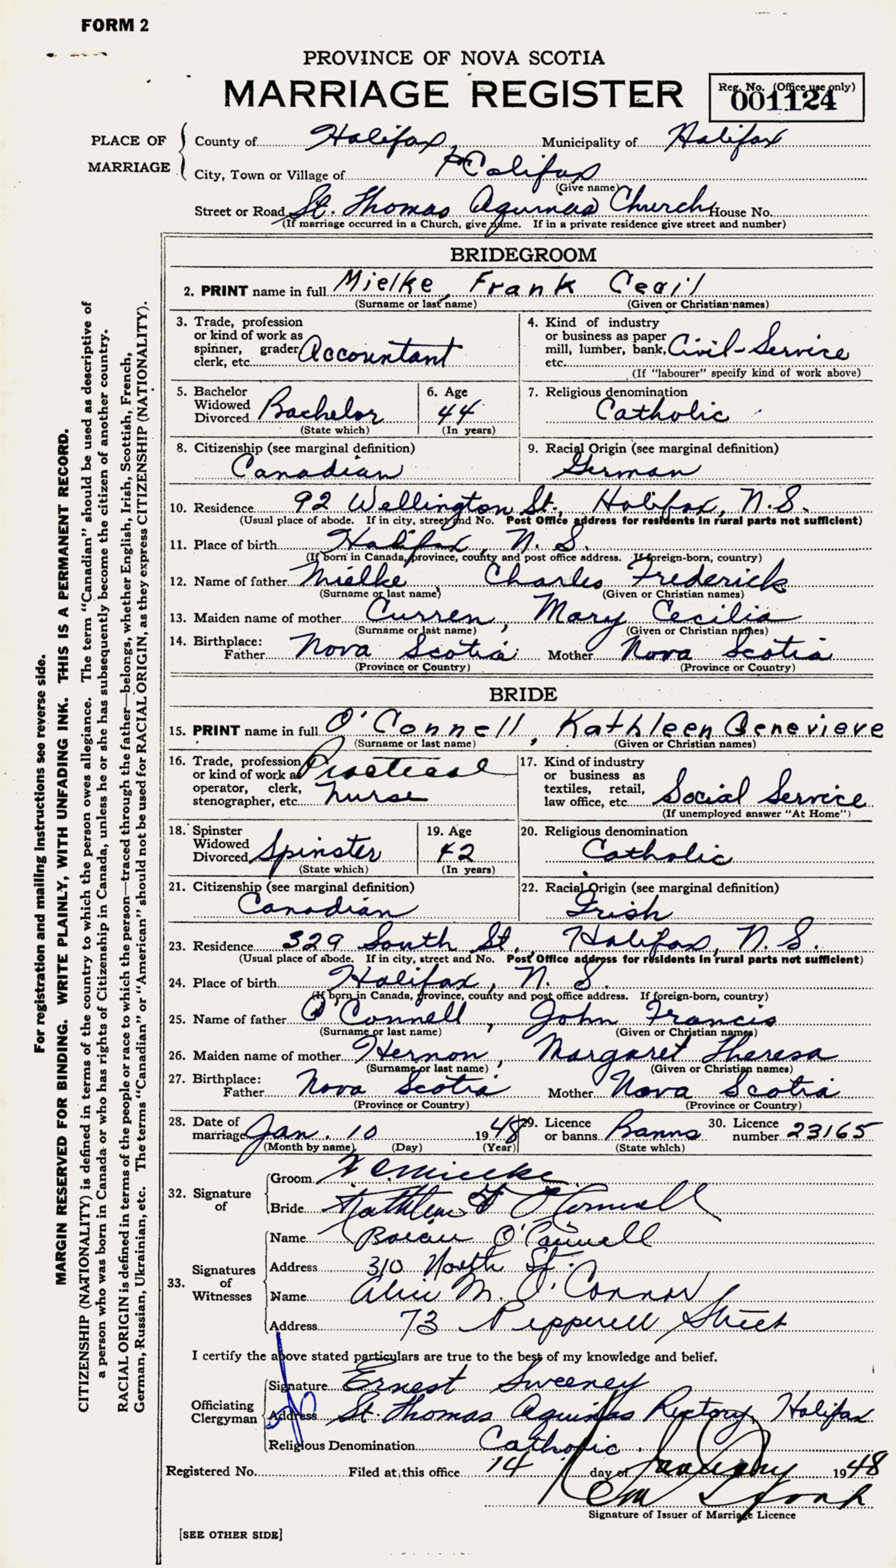 FORM 2
PROVINCE OF NOVA SCOTIA
MARRIAGE REGISTER
Reg. No. (Office use only)
001124
PLACE OF MARRIAGE
County of Halifax, Municipality of Halifax
City, Town or Village of Halifax
(Give name)
Street or Road St. Thomas Aquinas Church House No.
(If marriage occurred in a Church, give name. If in a private residence give street and number)
BRIDEGROOM
2. PRINT name in full Mielke, Frank Cecil
(Surname or last name) (Given or Christian names)
3. Trade, profession or kind of work as spinner, grader, clerk, etc. Accountant
4. Kind of industry or business as paper mill, lumber, bank, etc. Civil-Service
(If "labourer" specify kind of work above)
5. Bachelor Widowed Divorced Bachelor
(State which)
6. Age 44
(In years)
7. Religious denomination Catholic
8. Citizenship (see marginal definition) Canadian
9. Racial Origin (see marginal definition) German
10. Residence 92 Wellington St., Halifax, N.S.
(Usual place of abode. If in city, street and No. Post Office address for residents in rural parts not sufficient)
11. Place of birth Halifax, N.S.
(If born in Canada, province, county and post office address. If foreign-born, country)
12. Name of father Mielke Charles Frederick
(Surname or last name) (Given or Christian names)
13. Maiden name of mother Curren, Mary Cecilia
(Surname or last name) (Given or Christian names)
14. Birthplace: Father Nova Scotia Mother Nova Scotia
(Province or Country) (Province or Country)
BRIDE
15. PRINT name in full O'Connell, Kathleen Genevieve
(Surname or last name) (Given or Christian names)
16. Trade, profession or kind of work as operator, clerk, stenographer, etc. Practical nurse
17. Kind of industry or business as textiles, retail, law office, etc. Social Service
(If unemployed answer "At Home")
18. Spinster Widowed Divorced Spinster
(State which)
19. Age 42
(In years)
20. Religious denomination Catholic
21. Citizenship (see marginal definition) Canadian
22. Racial Origin (see marginal definition) Irish
23. Residence 329 South St., Halifax, N.S.
(Usual place of abode. If in city, street and No. Post Office address for residents in rural parts not sufficient)
24. Place of birth Halifax, N.S.
(If born in Canada, province, county and post office address. If foreign-born, country)
25. Name of father O'Connell, John Francis
(Surname or last name) (Given or Christian names)
26. Maiden name of mother Hernon, Margaret Theresa
(Surname or last name) (Given or Christian names)
27. Birthplace: Father Nova Scotia Mother Nova Scotia
(Province or Country) (Province or Country)
28. Date of marriage Jan. 10 1948
(Month by name) (Day) (Year)
29. Licence or banns Banns
(State which)
30. Licence number 23165
32. Signature of
Groom
Bride Kathleen O'Connell
33. Signatures of Witnesses
Name O'Connell
Address 310 North St.
Name Alice M. O'Connor
Address 73 Pepperell Street
I certify the above stated particulars are true to the best of my knowledge and belief.
Officiating Clergyman
Signature Ernest Sweeney
Address St. Thomas Aquinas Rectory, Halifax
Religious Denomination Catholic
Registered No. Filed at this office 14 day of January 1948
Signature of Issuer of Marriage Licence
[SEE OTHER SIDE]
For registration and mailing instructions see reverse side.
MARGIN RESERVED FOR BINDING. WRITE PLAINLY, WITH UNFADING INK. THIS IS A PERMANENT RECORD.
CITIZENSHIP (NATIONALITY) is defined in terms of the country to which the person owes allegiance. The term "Canadian" should be used as descriptive of
a person who was born in Canada or who has rights of Citizenship in Canada, unless he or she has subsequently become the citizen of another country.
RACIAL ORIGIN is defined in terms of the people or race to which the person—traced through the father—belongs, whether English, Irish, Scottish, French,
German, Russian, Ukrainian, etc. The terms "Canadian" or "American" should not be used for RACIAL ORIGIN, as they express CITIZENSHIP (NATIONALITY).